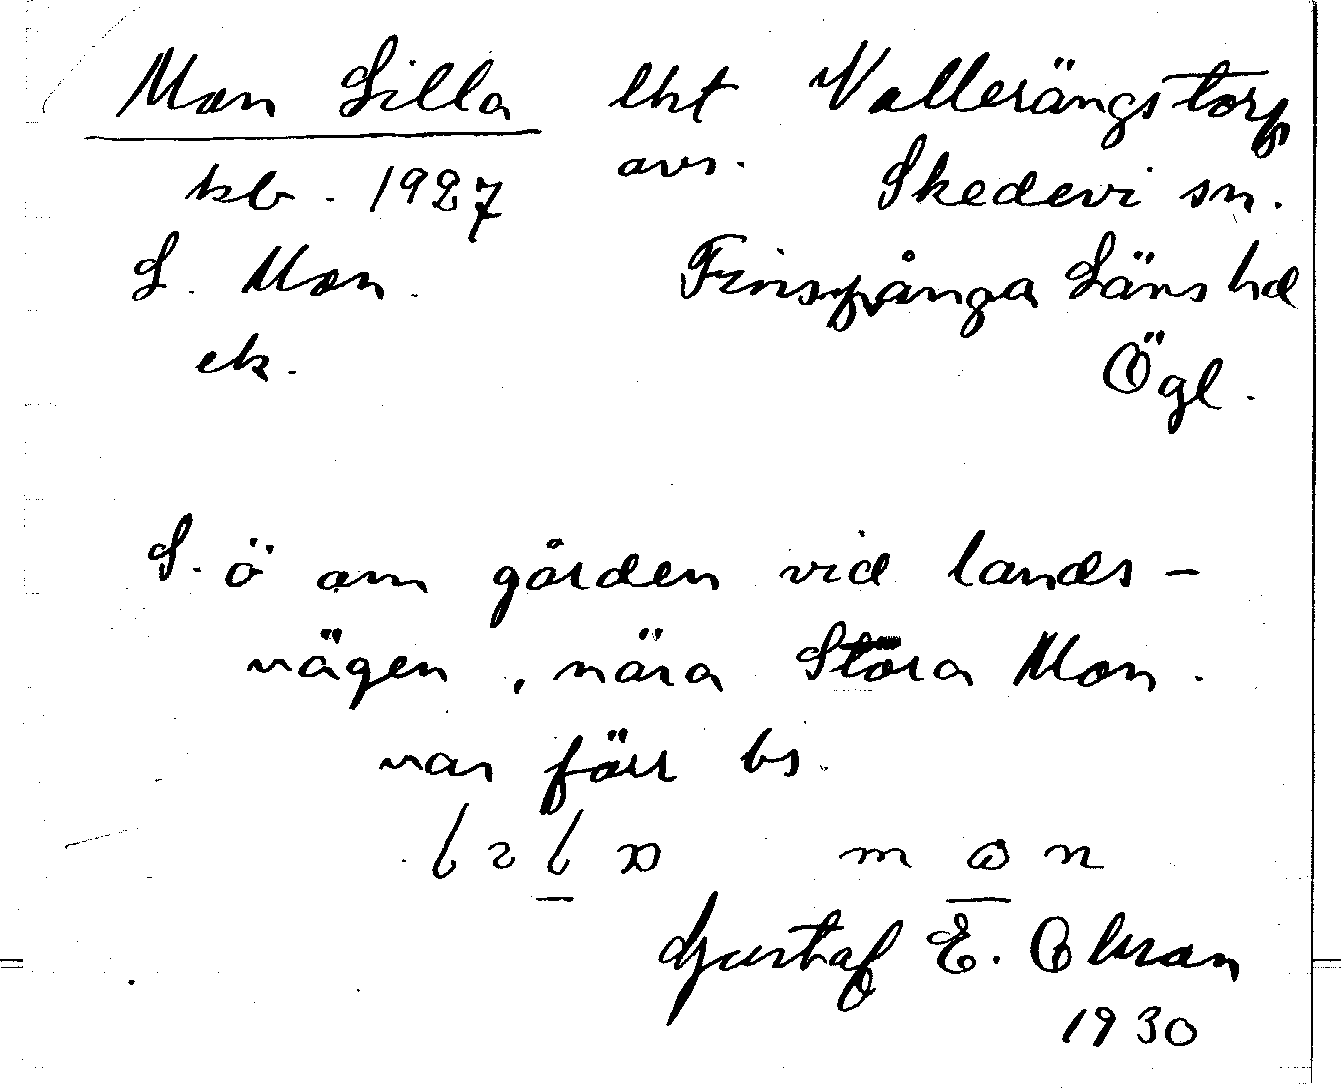 Mon Lilla lht Vallerängstorp
avs.
kb. 1927 Skedevi sn.
L. Mon. Finspånga Läns hd
ek. Ögl.
S. ö om gården vid lands-
vägen, nära Stora Mon.
var förr bs.
m n
Gustaf E.
1930